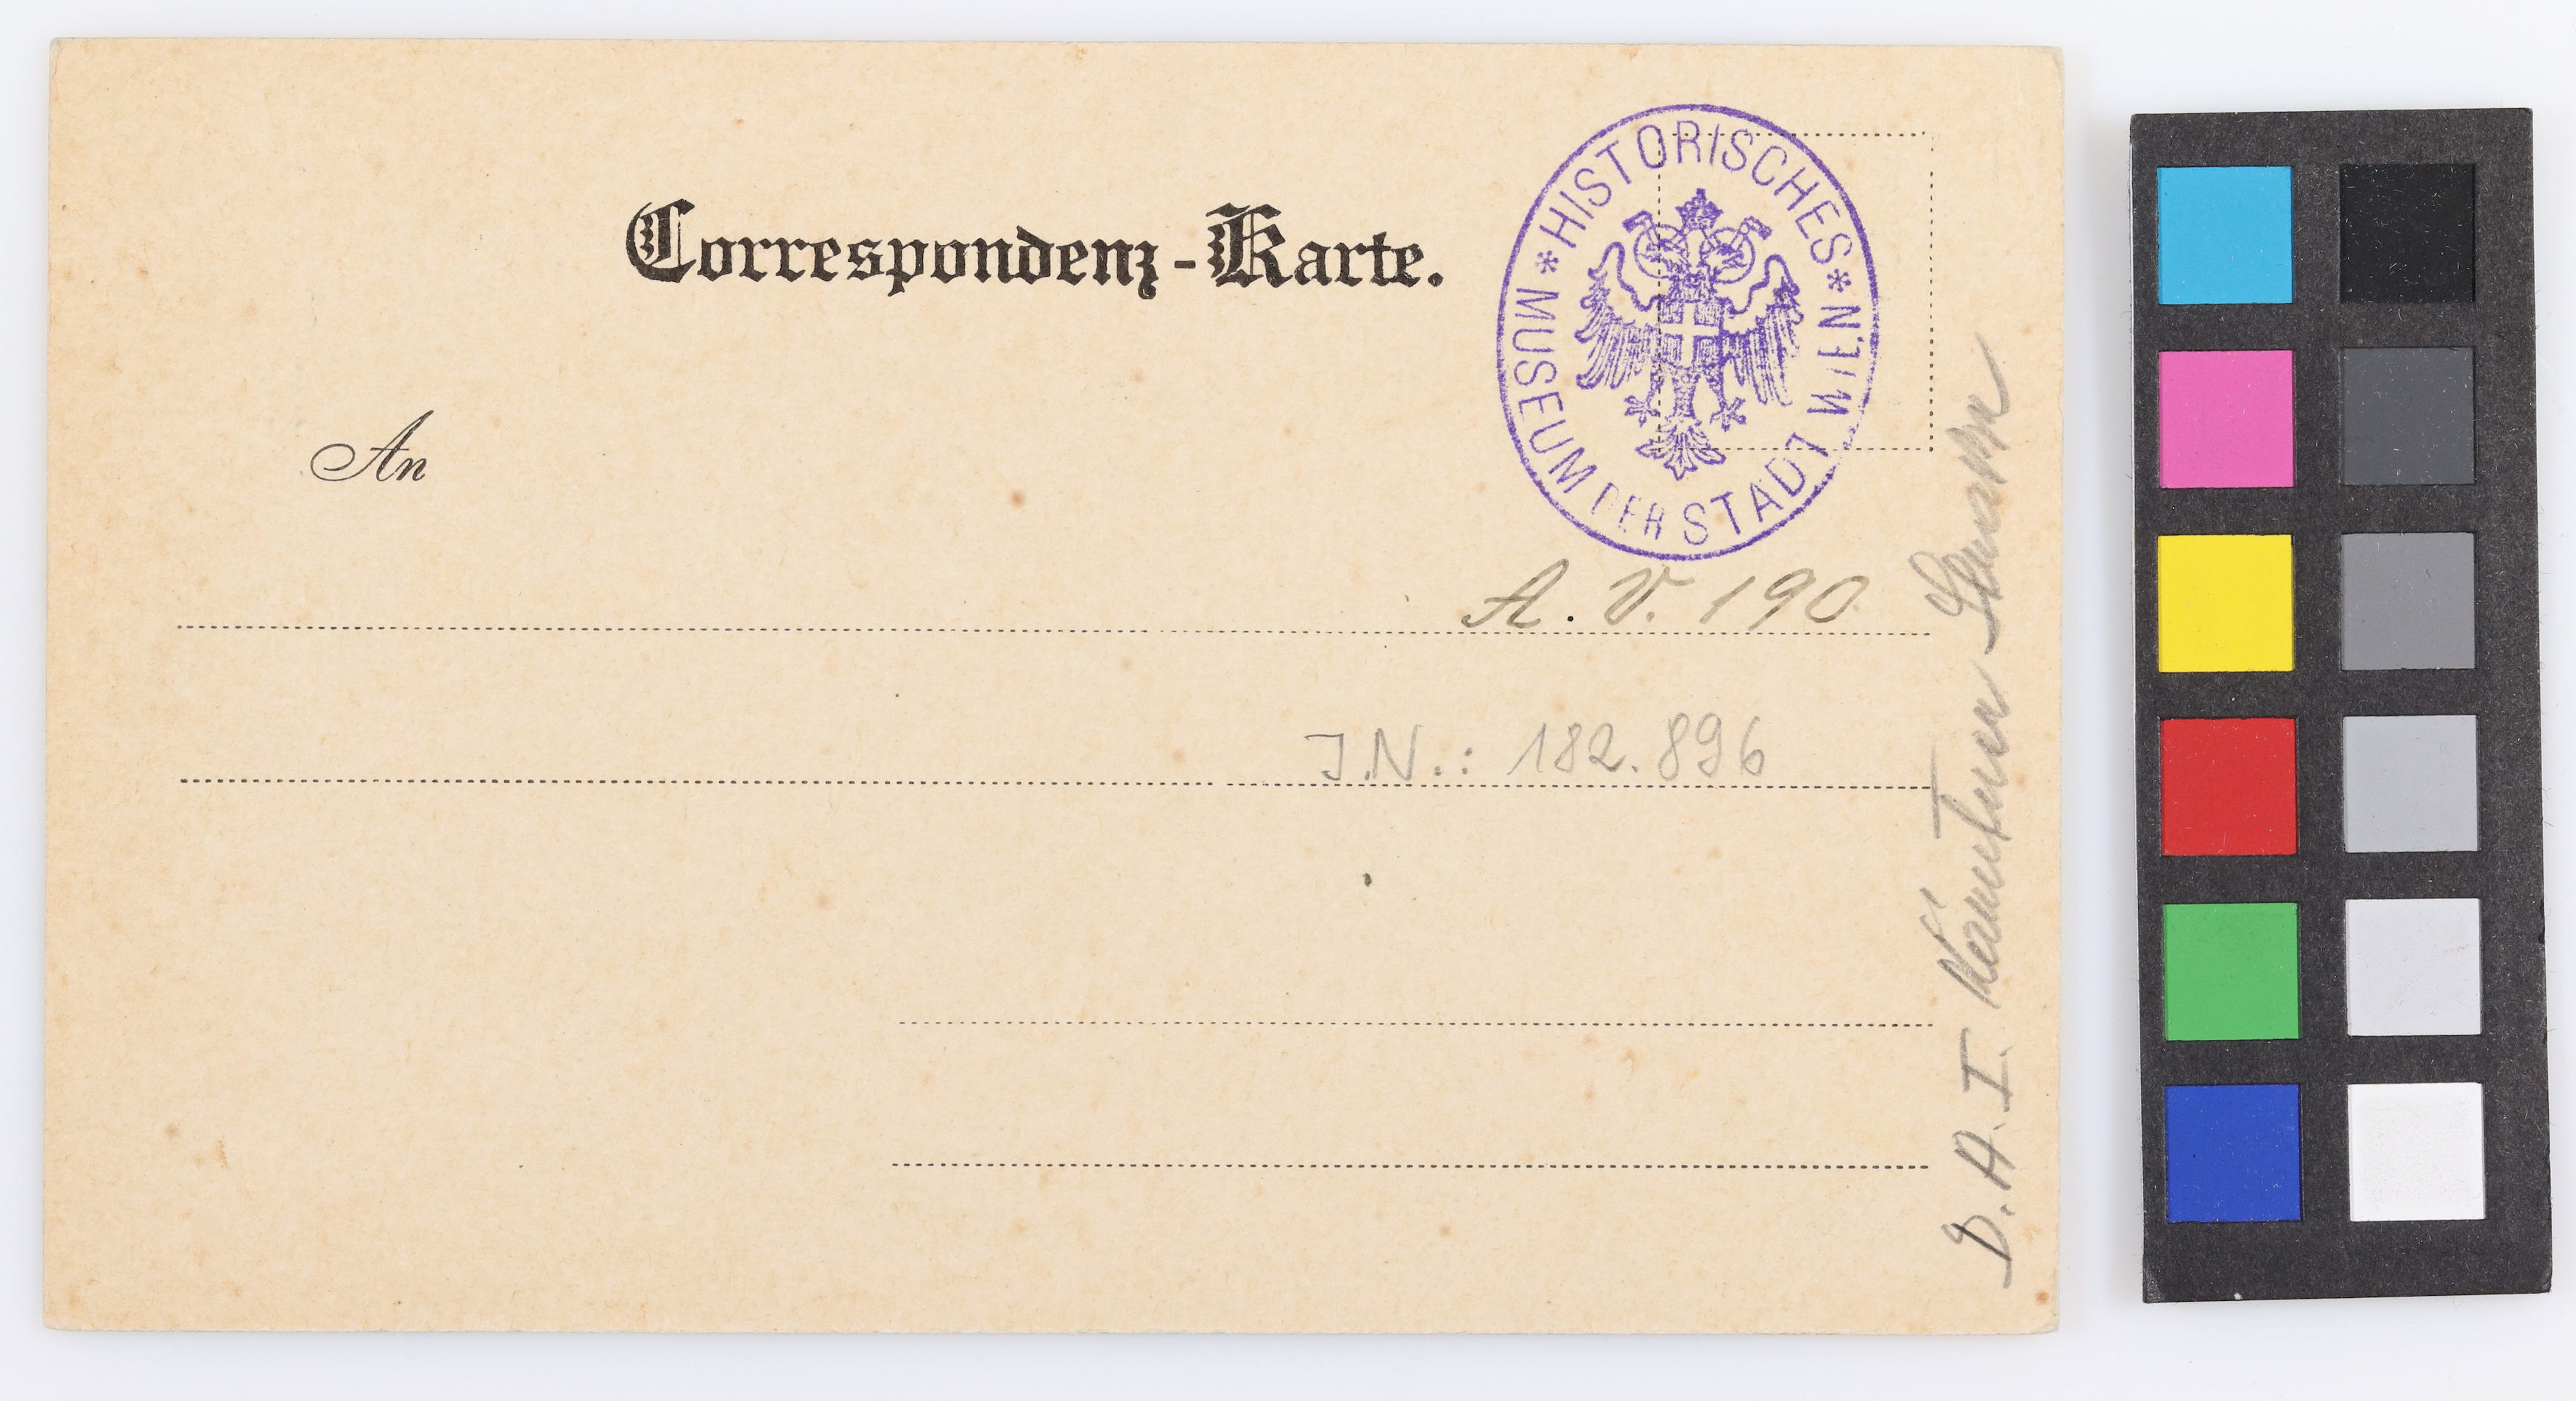 Correspondenz-Karte.
* HISTORISCHES * MUSEUM DER STADT WIEN
An
A.V. 190
J.N.: 182.896
D. A. I. Kärntner Strasse